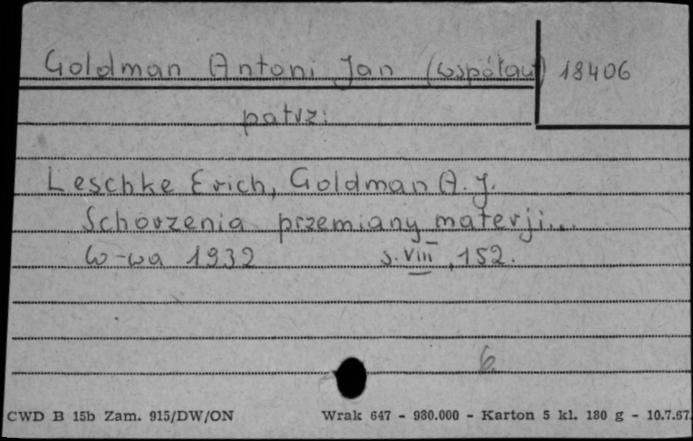 Goldman Antoni Jan (współaut) 18406
patrz:
Leschke Erich, Goldman A. J.
Schorzenia przemiany materji...
W-wa 1932 s. VIII, 152.
6
CWD B 15b Zam. 915/DW/ON Wrak 647 - 980.000 - Karton 5 kl. 180 g - 10.7.67.